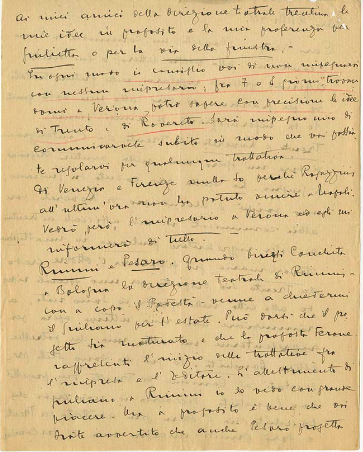 ai miei amici della direzione teatrale trentina le
mie idee in proposito e la mia preferenza per
Giulietta o per la via della finestra. -
In ogni modo io consiglio voi di non impegnarvi
con nessun impresario; fra 7 o 8 giorni trovan
domi a Verona potrò sapere con precisione le idee
di Trento e di Rovereto. Sarà impegno mio di
comunicarvele subito in modo che voi possia
te regolarvi per qualunque trattativa.
Di Venezia e Firenze nulla so perché
all'ultim'ora non ha potuto venire a Napoli.
Vedrò però l'impresario a Verona ed egli mi
informerà di tutto.
Rimini e Pesaro. Quando diressi Conchita
a Bologna la direzione teatrale di Rimini -
con a capo il Podestà - venne a chiedermi
il Giuliano per l'estate. Può darsi che il pro
getto sia maturato e che la proposta
rappresenti l'inizio delle trattative fra
l'impresa e l'Editore. L'allestimento di
Giuliano a Rimini io lo vedo con grande
piacere. Ma a proposito è bene che voi
siate avvertito che anche Pesaro progetta